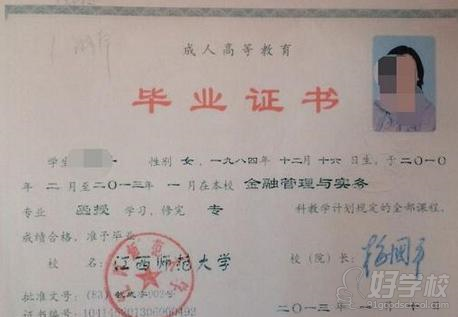 成人高等教育
毕业证书
学生 性别 女，一九八四年 十二月 十六日生，于二〇一〇
年 二月至二〇一三年 一月在本校 金融管理与实务
专业 函授 学习，修完 专 科教学计划规定的全部课程，
成绩合格，准予毕业。
校 名：江西师范大学 校（院）长：
批准文号：(83)
证书编号： 二〇一三年 一月
好学校